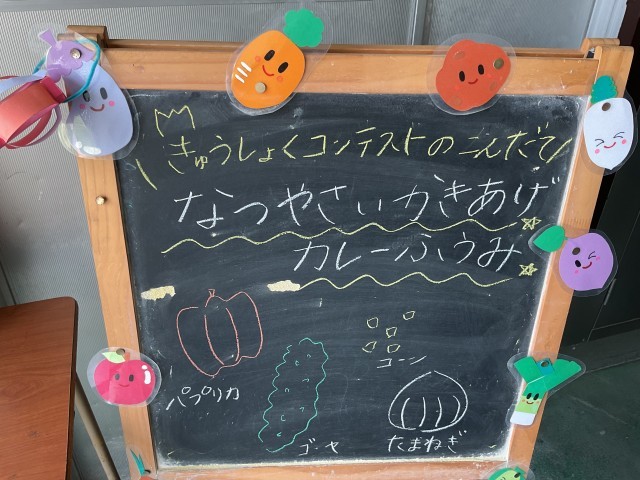 きゅうしょくコンテストのこんだて
なつやさいかきあげ
カレーふうみ
パプリカ
ゴーヤ
コーン
たまねぎ